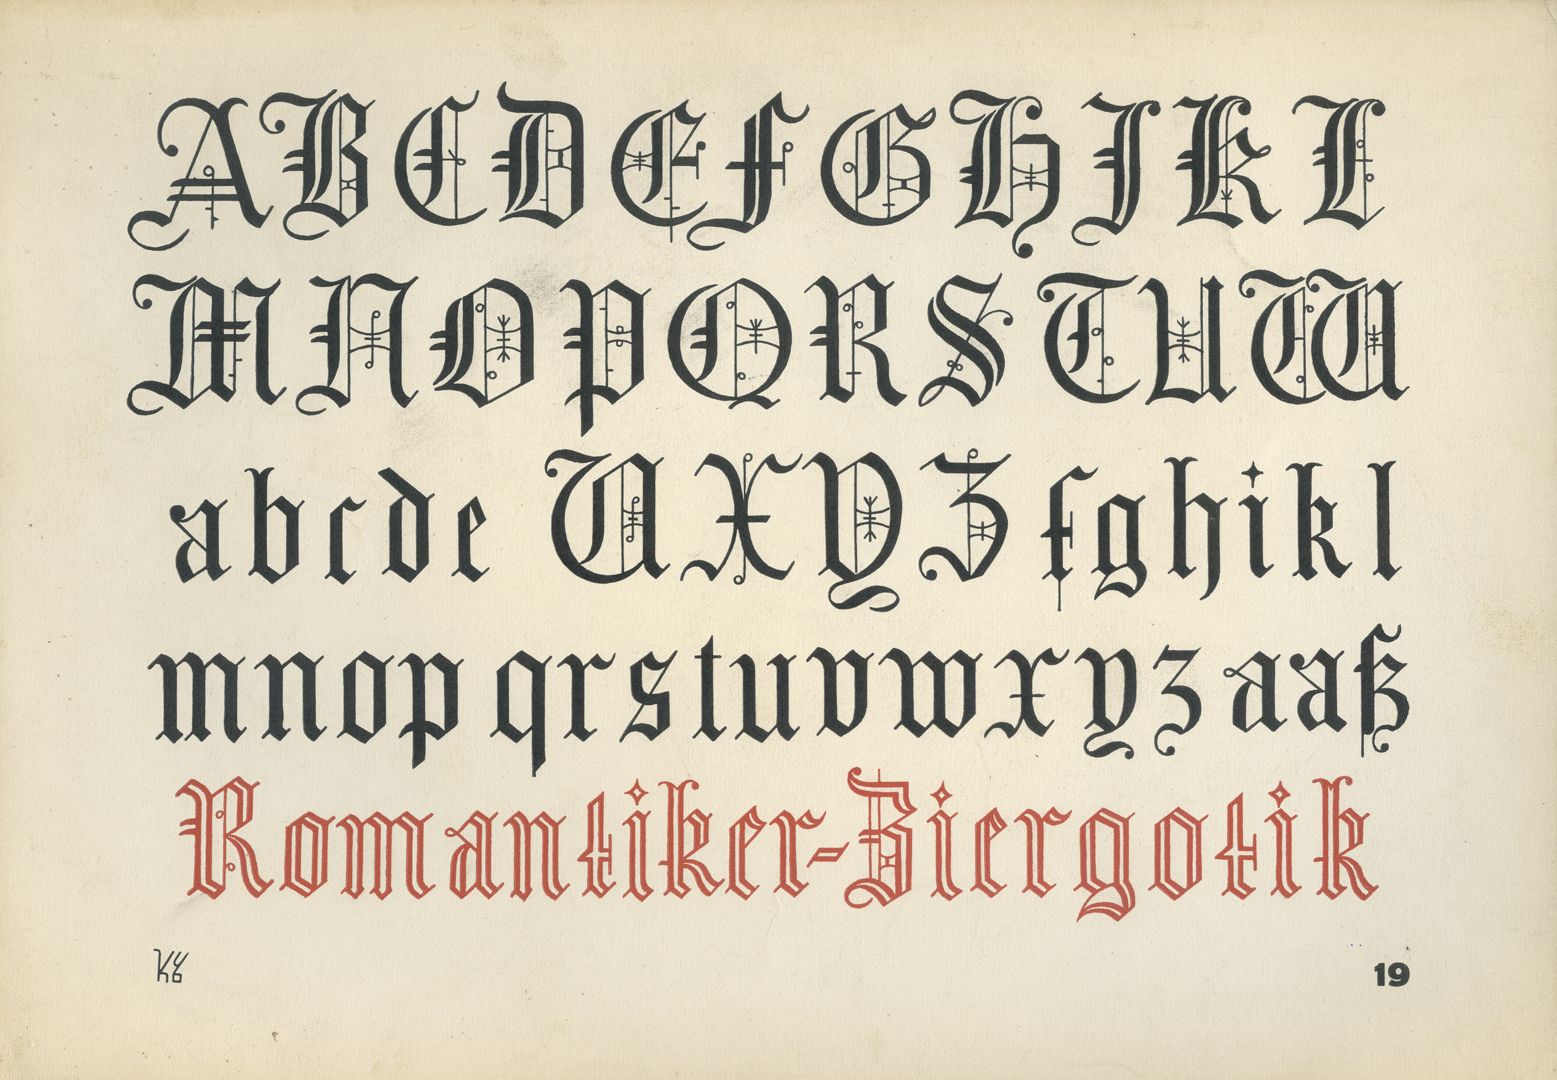 ABCDEFGHIKL
MNOPQRSTUW
abcde VXYZ fghikl
mnop qrstuvwxyz aaß
Romantiker-Ziergotik
19